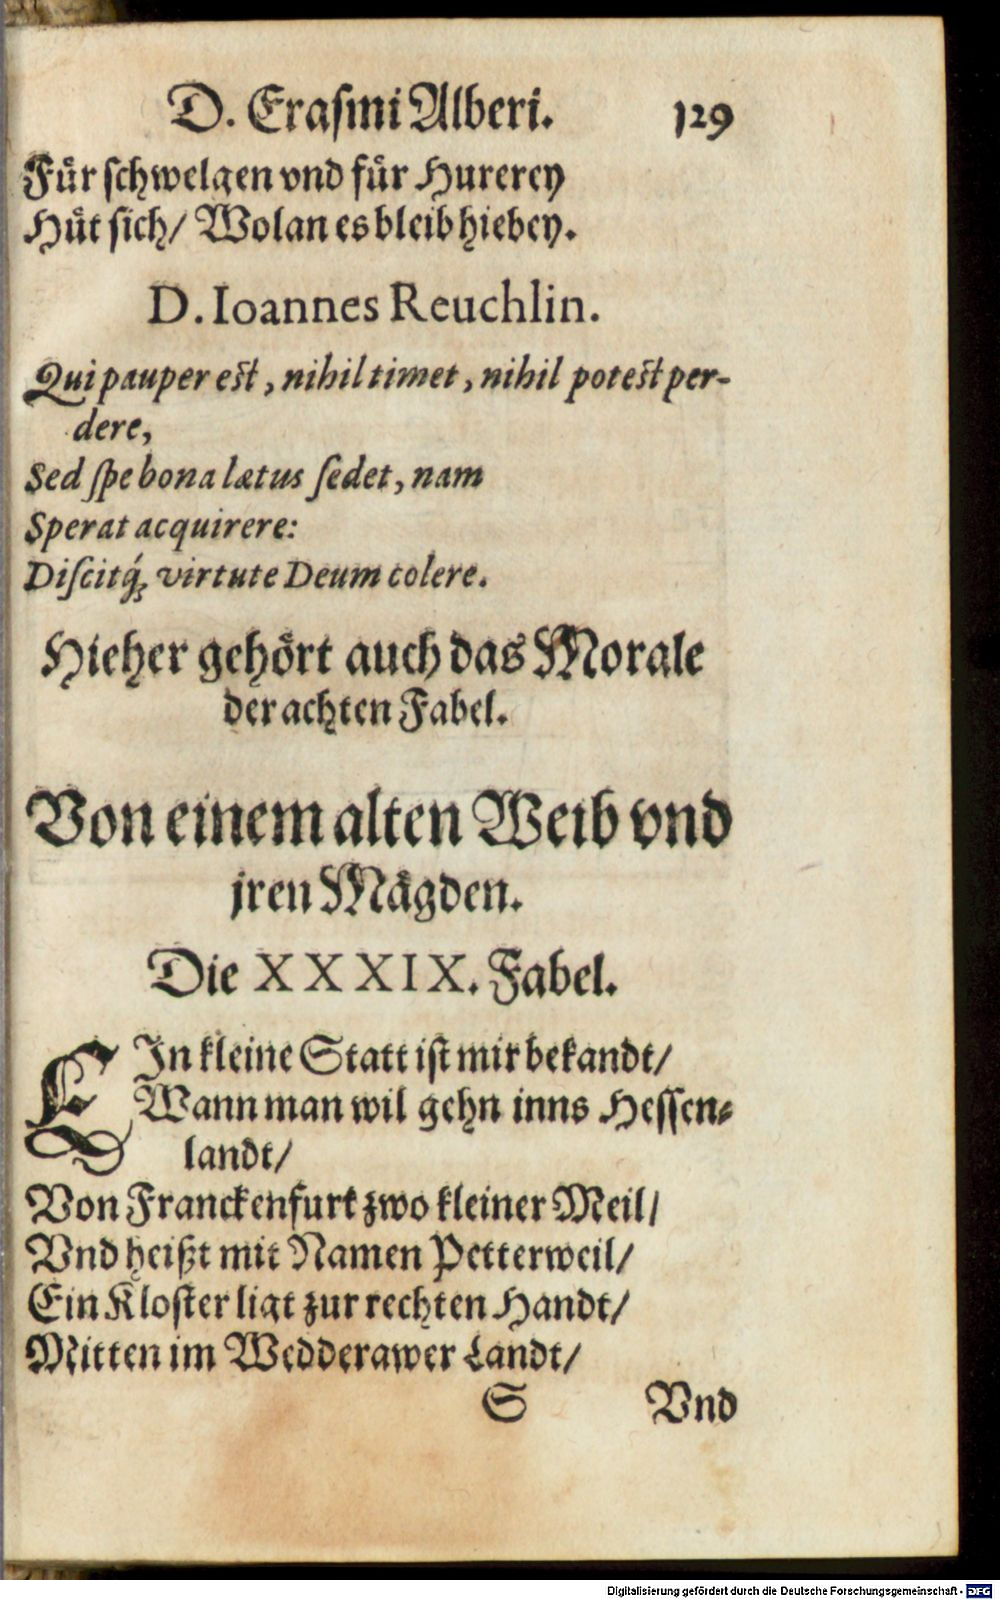 D. Erasmi Alberi. 129
Fuͤr schwelgen vnd fuͤr Hurerey
Huͤt sich/ Wolan es bleib hiebey.
D. Ioannes Reuchlin.
Qui pauper est, nihil timet, nihil potest per-
dere,
Sed spe bona lætus sedet, nam
Sperat acquirere:
Discitq́ꝫ virtute Deum colere.
Hieher gehoͤrt auch das Morale
der achten Fabel.
Von einem alten Weib vnd
jren Maͤgden.
Die XXXIX. Fabel.
EJn kleine Statt ist mir bekandt/
Wann man wil gehn inns Hessen-
landt/
Von Franckenfurt zwo kleiner Meil/
Vnd heißt mit Namen Petterweil/
Ein Kloster ligt zur rechten Handt/
Mitten im Wedderawer Landt/
S Vnd
Digitalisierung gefördert durch die Deutsche Forschungsgemeinschaft - DFG